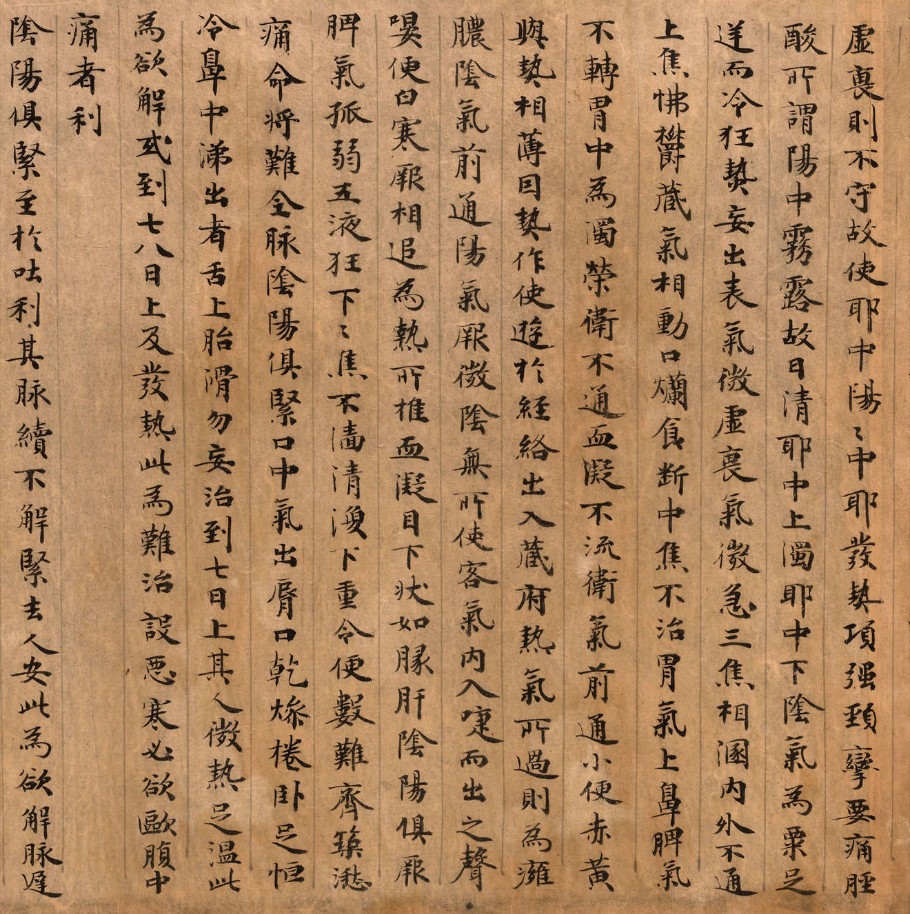 虛裏則不守故使耶中陽〻中耶發熱項强頸攣要痛脛
酸所謂陽中霧露故曰清耶中上濁耶中下陰氣為栗足
逆而冷狂熱妄出表氣微虛裏氣微急三焦相溷内外不通
上焦怫欝藏氣相動口爛食断中焦不治胃氣上鼻脾氣
不轉胃中為濁榮衛不通血凝不流衛氣前通小便赤黄
與熱相薄因熱作使遊於経絡出入藏府熱氣所過則為癰
膿陰氣前通陽氣厥微陰無所使客氣内入嚏而出之聲
嗢便白寒厥相追為熱所推血凝自下狀如豚肝陰陽俱厥
脾氣孤弱五液狂下〻焦不濇清溲下重令便數難齊築湫
痛命将難全脉陰陽俱緊口中氣出脣口乾燥惓卧足恒
冷鼻中涕出者舌上胎滑勿妄治到七日上其人微熱足温此
為欲解或到七八日上反發熱此為難治設惡寒必欲歐腹中
痛者利
陰陽俱緊至於吐利其脉續不解緊去人安此為欲解脉遲